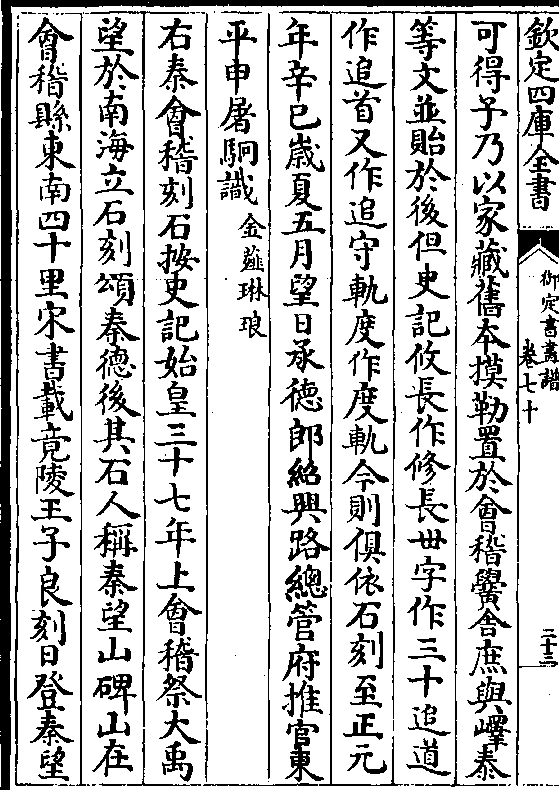 欽定四庫全書
御定書畫譜
卷七十
二十三
可得予乃以家藏舊本摸勒置於會稽黌舍庶與嶧泰
等文並貽於後但史記攸長作修長丗字作三十追道
作追首又作追守軌度作度軌今則俱依石刻至正元
年辛巳歲夏五月望日承德郎紹興路總管府推官東
平申屠駉識金薤琳琅
右秦會稽刻石按史記始皇三十七年上會稽祭大禹
望於南海立石刻頌秦德後其石人稱秦望山碑山在
會稽縣東南四十里宋書載竟陵王子良刻日登秦望